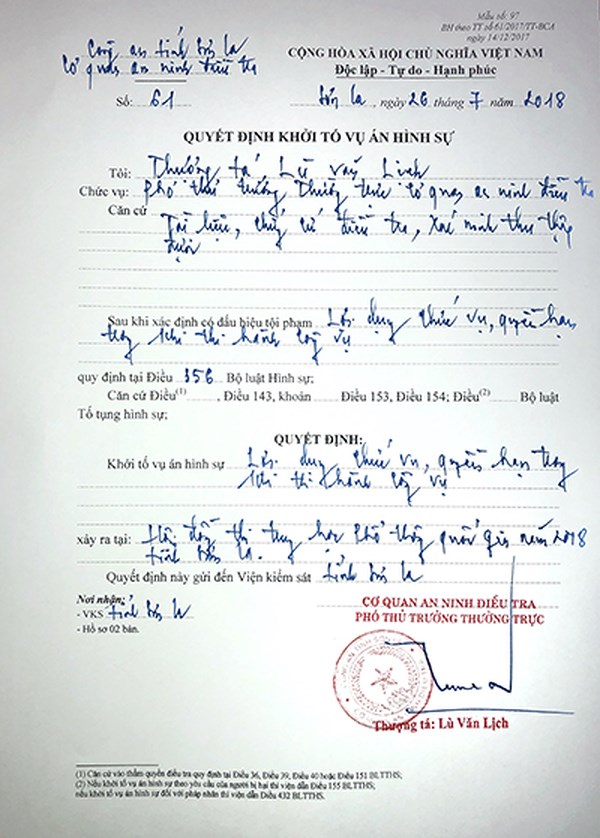 Mẫu số: 97
BH theo TT số 61/2017/TT-BCA
ngày 14/12/2017
Công an tỉnh Sơn La
Cơ quan an ninh điều tra
CỘNG HÒA XÃ HỘI CHỦ NGHĨA VIỆT NAM
Độc lập - Tự do - Hạnh phúc
Số: 61
Sơn La, ngày 26 tháng 7 năm 2018
QUYẾT ĐỊNH KHỞI TỐ VỤ ÁN HÌNH SỰ
Tôi: Thượng tá Lù Văn Lịch
Chức vụ: Phó thủ trưởng Thường trực Cơ quan an ninh điều tra
Căn cứ
Tài liệu, chứng cứ điều tra, xác minh thu thập
được
Sau khi xác định có dấu hiệu tội phạm Lợi dụng chức vụ, quyền hạn
trong khi thi hành công vụ
quy định tại Điều 356 Bộ luật Hình sự;
Căn cứ Điều(1), Điều 143, khoản Điều 153, Điều 154; Điều(2) Bộ luật
Tố tụng hình sự;
QUYẾT ĐỊNH:
Khởi tố vụ án hình sự Lợi dụng chức vụ, quyền hạn trong
khi thi hành công vụ
xảy ra tại: Hội đồng thi trung học phổ thông quốc gia năm 2018
tỉnh Sơn La.
Quyết định này gửi đến Viện kiểm sát tỉnh Sơn La
Nơi nhận:
- VKS tỉnh Sơn La
- Hồ sơ 02 bản.
CƠ QUAN AN NINH ĐIỀU TRA
PHÓ THỦ TRƯỞNG THƯỜNG TRỰC
Thượng tá: Lù Văn Lịch
(1) Căn cứ vào thẩm quyền điều tra quy định tại Điều 36, Điều 39, Điều 40 hoặc Điều 151 BLTTHS;
(2) Nếu khởi tố vụ án hình sự theo yêu cầu của người bị hại thì viện dẫn Điều 155 BLTTHS;
nếu khởi tố vụ án hình sự đối với pháp nhân thì viện dẫn Điều 432 BLTTHS.